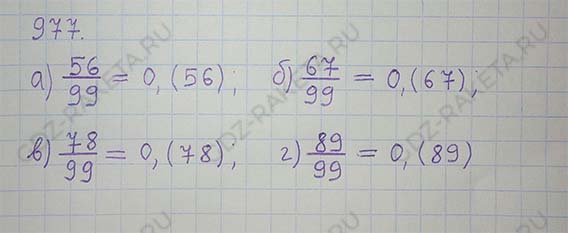 977.
а) 56/99 = 0,(56); б) 67/99 = 0,(67);
в) 78/99 = 0,(78); г) 89/99 = 0,(89)
GDZ-RAKETA.RU